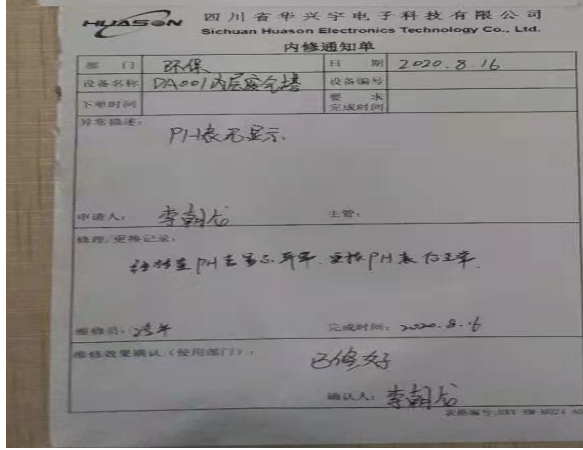 HUASON 四川省华兴宇电子科技有限公司
Sichuan Huason Electronics Technology Co., Ltd.
内修通知单
部 门 环保 日 期 2020.8.16
设备名称 DA001内层酸雾塔 设备编号
下单时间 要 求
完成时间
异常描述:
PH表无显示.
申请人: 李朝龙 主管:
修理/更换记录:
经检查PH表显示异常.更换PH表后正常.
维修员: 完成时间: 2020.8.16
维修效果确认(使用部门):
已修好
确认人: 李朝龙
表格编号: